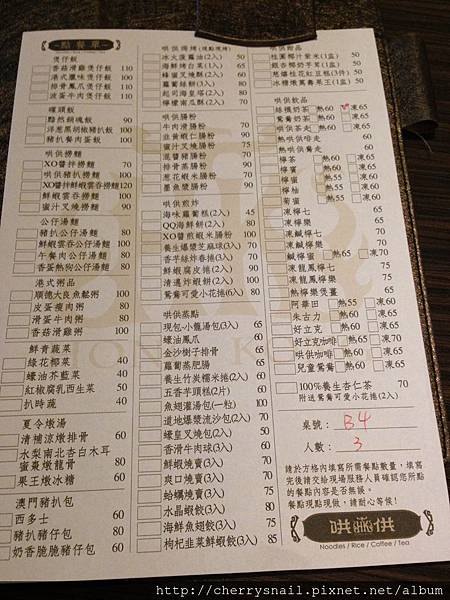 點餐單
煲仔飯
香菇滑雞煲仔飯 110
港式臘味煲仔飯 100
排骨鳳爪煲仔飯 100
皮蛋牛肉煲仔飯 90
碟頭飯
黯然銷魂飯 90
洋蔥黑胡椒豬扒飯 100
豬扒餐肉蛋飯 100
哄供撈麵
XO醬拌撈麵 70
哄供豬扒撈麵 100
XO醬拌鮮蝦雲吞撈麵 120
鮮蝦雲吞撈麵 100
蜜汁叉燒撈麵 90
公仔湯麵
豬扒公仔湯麵 80
鮮蝦雲吞公仔湯麵 100
午餐肉公仔湯麵 80
香蛋熱狗公仔湯麵 80
港式粥品
順德大良魚鬆粥 100
皮蛋瘦肉粥 80
滑蛋牛肉粥 80
香菇滑雞粥 100
鮮青蔬菜
綠花椰菜 40
蠔油芥藍菜 40
紅椒腐乳西生菜 50
扒時蔬 40
夏令燉湯
清補涼燉排骨 60
水梨南北杏白木耳
蜜棗燉龍骨 80
果王燉冰糖 60
澳門豬扒包
西多士 60
豬扒豬仔包 80
奶香脆脆豬仔包 60
冰火菠蘿油(2入) 50
海鮮烤白菜(1入) 50
蜂蜜叉燒酥(2入) 60
蘿蔔絲餅(3入) 80
司司海皇塔(2入) 80
檸檬南瓜酥(2入) 70
哄供腸粉
牛肉滑腸粉 90
韭黃蝦仁腸粉 90
蜜汁叉燒腸粉 90
混醬豬腸粉 80
排骨蒸腸粉 90
蔥花蝦米腸粉 90
墨魚漿腸粉 90
哄供煎炸
海味蘿蔔糕(2入) 45
QQ海鮮餅(2入) 80
XO醬煎蝦米腸粉 100
養生爆漿芝麻球(3入) 70
香芋絲炸春捲(3入) 70
鮮蝦腐皮捲(2入) 90
清邁炸蝦餅(2入) 80
鴛鴦可愛小花捲(6入) 80
哄供蒸點
現包小籠湯包(3入) 65
蠔油鳳爪 60
金沙樹子排骨 65
蘿蔔蒸肥腸 60
養生竹炭糯米捲(2入) 60
五香芋頭糕(2片) 60
魚翅灌湯包(一粒) 100
道地爆漿流沙包(2入) 70
蠔皇叉燒包(2入) 50
香滑牛肉球(3入) 60
鮮蝦燒賣(3入) 70
爽口燒賣(3入) 70
蛤蠣燒賣(3入) 75
水晶蝦餃(3入) 80
海鮮魚翅餃(3入) 75
枸杞韭菜鮮蝦餃(3入) 85
哄供甜品
桂圓椰汁紫米(1盅) 50
銀杏椰奶芋茸(1盅) 50
慈爐桂花紅豆糕(3件) 50
冰糖燉萬壽果王(1盅) 60
哄供飲品
絲襪奶茶 熱60 凍65
鴛鴦奶茶 熱60 凍65
哄供茶走 熱60 凍65
熱哄供啡走 60
熱哄供鴦走 60
檸茶 熱60 凍65
檸賓 熱60 凍65
檸蜜 熱60 凍65
檸柚 熱60 凍65
菊蜜 熱60 凍65
凍檸七 65
凍檸樂 65
凍鹹檸七 65
鹹檸蜜 熱60 凍65
凍龍鳳檸七 75
凍龍鳳檸樂 75
熱檸樂煲薑 65
阿華田 熱55 凍60
朱古力 熱55 凍60
好立克 熱55 凍60
好立克咖啡 熱60 凍65
哄供咖啡 熱60 凍65
兒童鴛鴦 熱60 凍65
100%養生杏仁茶 70
附送鴛鴦可愛小花捲(2入)
桌號： B4
人數： 3
請於方格內填寫所需餐點數量，填寫
完後請交給現場服務人員確認您所點
的餐點內容是否無誤。
餐點現點現做，請耐心等候！
哄供
Noodles / Rice / Coffee / Tea
http://cherrysnail.pixnet.net/album